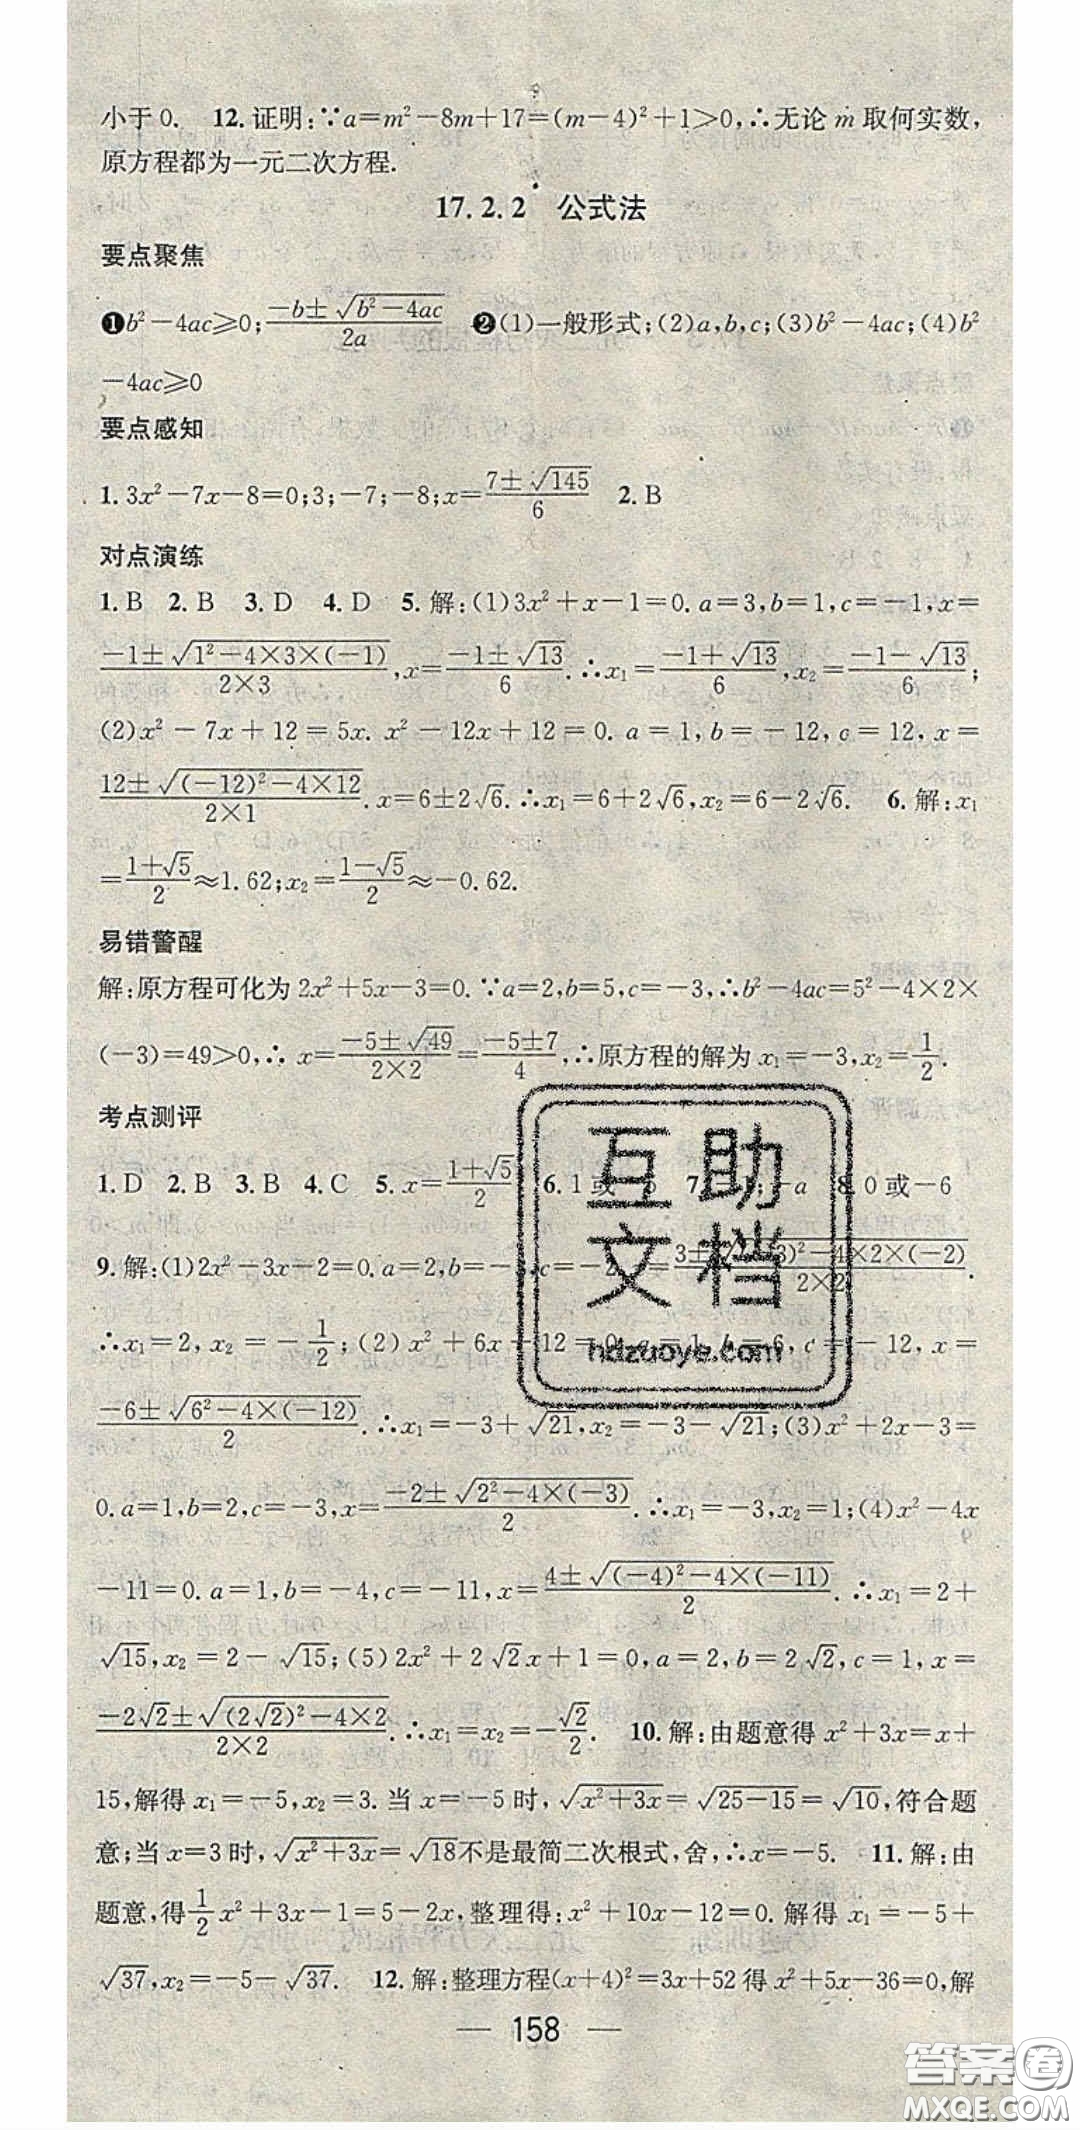 小于0. 12.证明:∵a=m²-8m+17=(m-4)²+1>0,∴无论 m 取何实数,
原方程都为一元二次方程.
17.2.2 公式法
要点聚焦
❶b²-4ac≥0;(-b±√(b²-4ac))/2a ❷(1)一般形式;(2)a,b,c;(3)b²-4ac;(4)b²
-4ac≥0
要点感知
1.3x²-7x-8=0;3;-7;-8;x=(7±√145)/6 2.B
对点演练
1.B 2.B 3.D 4.D 5.解:(1)3x²+x-1=0.a=3,b=1,c=-1,x=
(-1±√(1²-4×3×(-1)))/(2×3),x=(-1±√13)/6.∴x₁=(-1+√13)/6,x₂=(-1-√13)/6;
(2)x²-7x+12=5x. x²-12x+12=0. a=1,b=-12,c=12,x=
(12±√((-12)²-4×12))/(2×1).x=6±2√6.∴x₁=6+2√6,x₂=6-2√6. 6.解:x₁
=(1+√5)/2≈1.62;x₂=(1-√5)/2≈-0.62.
易错警醒
解:原方程可化为 2x²+5x-3=0.∵a=2,b=5,c=-3,∴b²-4ac=5²-4×2×
(-3)=49>0,∴ x=(-5±√49)/(2×2)=(-5±7)/4,∴原方程的解为 x₁=-3,x₂=1/2.
考点测评
1.D 2.B 3.B 4.C 5.x=(1+√5)/2 6.1或 7. ;-a 8.0或-6
9.解:(1)2x²-3x-2=0.a=2,b=-3,c=-2, =(3±√( 3)²-4×2×(-2))/(2×2).
∴x₁=2,x₂=-1/2;(2)x²+6x-12=0.a=1,b=6,c=-12,x=
(-6±√(6²-4×(-12)))/2.∴x₁=-3+√21,x₂=-3-√21;(3)x²+2x-3=
0.a=1,b=2,c=-3,x=(-2±√(2²-4×(-3)))/2.∴x₁=-3,x₂=1;(4)x²-4x
-11=0.a=1,b=-4,c=-11,x=(4±√((-4)²-4×(-11)))/2.∴x₁=2+
√15,x₂=2-√15;(5)2x²+2√2x+1=0,a=2,b=2√2,c=1,x=
(-2√2±√((2√2)²-4×2))/(2×2).∴x₁=x₂=-√2/2. 10.解:由题意得 x²+3x=x+
15,解得 x₁=-5,x₂=3.当 x=-5时,√(x²+3x)=√(25-15)=√10,符合题
意;当 x=3时,√(x²+3x)=√18不是最简二次根式,舍,∴x=-5. 11.解:由
题意,得 1/2 x²+3x-1=5-2x,整理得:x²+10x-12=0.解得 x₁=-5+
√37,x₂=-5-√37. 12.解:整理方程(x+4)²=3x+52得 x²+5x-36=0,解
— 158 —
互助
文档
hdzuoye.com
答案圈
MXQE.COM